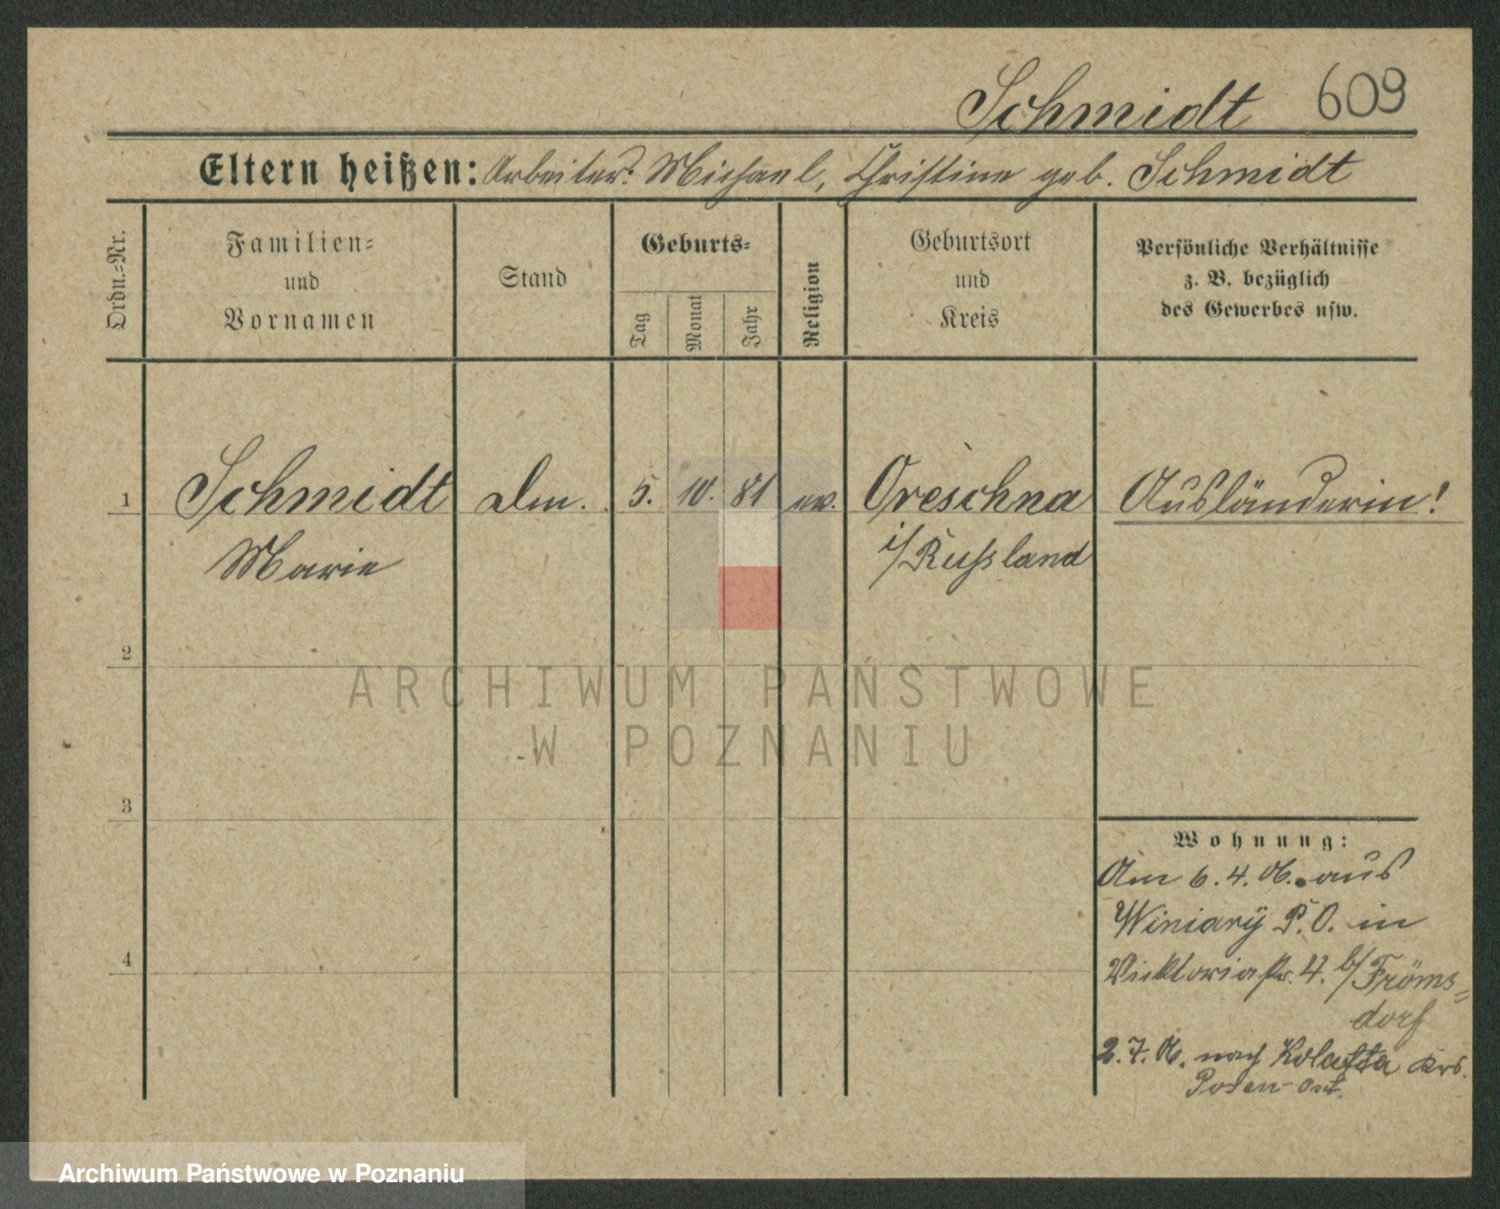 Schmidt 609
Eltern heißen: Arbeiter: Michael, Christine geb. Schmidt
Ordn.=Nr.
Familien=
und
Vornamen
Stand
Geburts=
Tag
Monat
Jahr
Religion
Geburtsort
und
Kreis
Persönliche Verhältnisse
z. B. bezüglich
des Gewerbes usw.
1 Schmidt 5. 10. 81 ev. Oreschna Ausländerin!
Marie i/Russland
2
ARCHIWUM PAŃSTWOWE
W POZNANIU
3
Wohnung:
Am 6.4.06. aus
Winiary P.O. in
Viktoriastr. 4. b/Fröms=
4
dorf
2.7.06. nach Krs.
Posen-Ost.
Archiwum Państwowe w Poznaniu